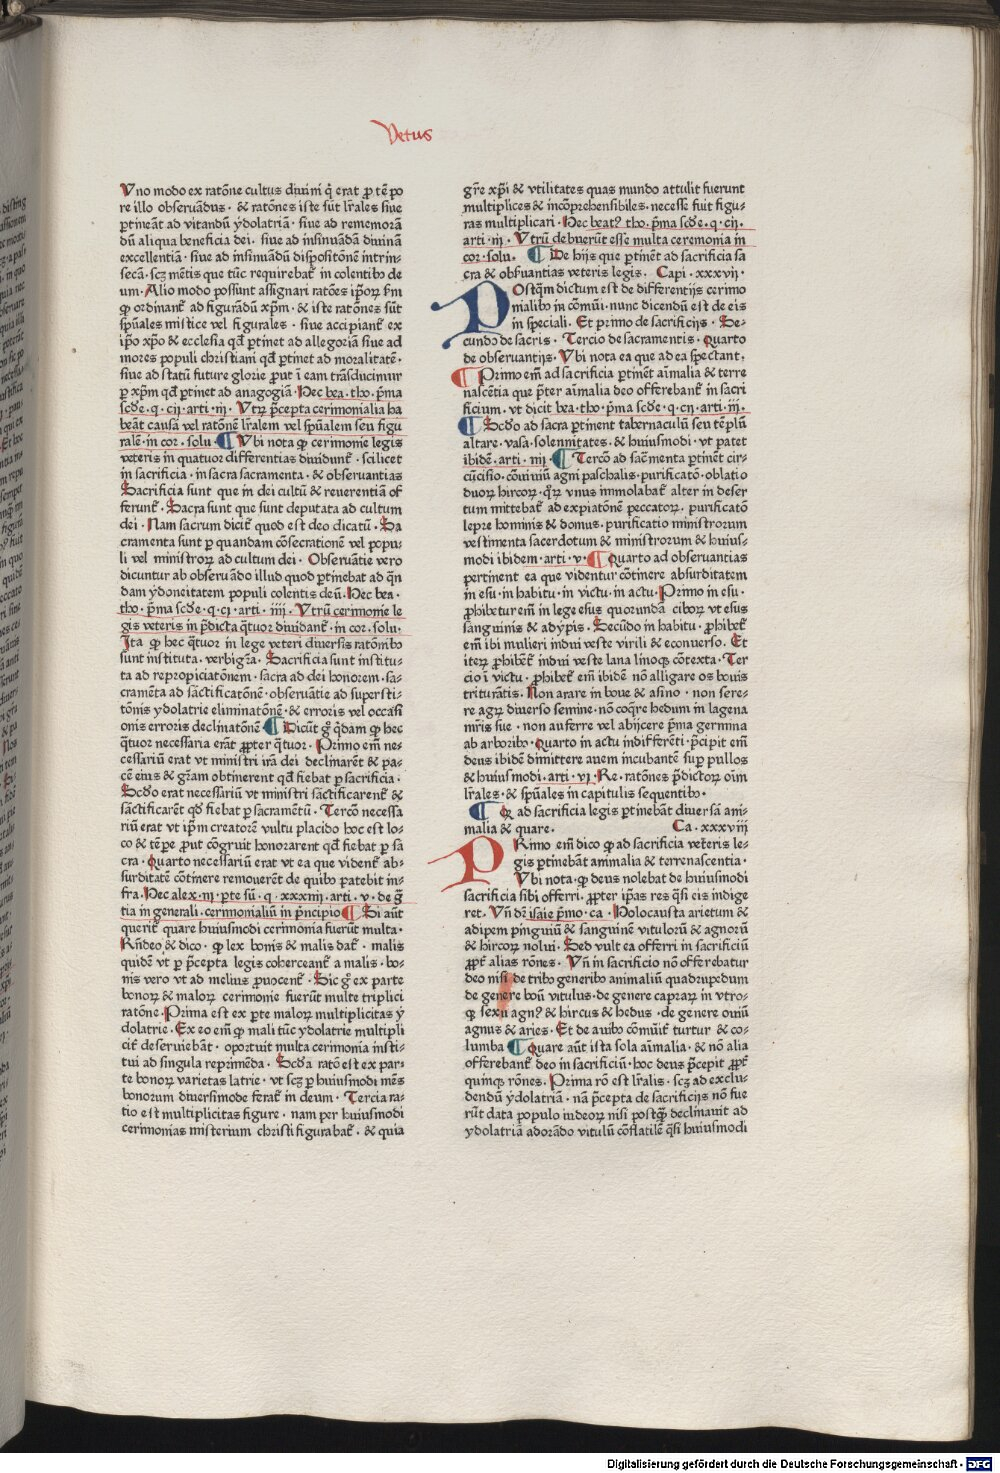 Vetus
Vno modo ex ratōne cultus diuini q̇ erat ꝓ tēpo
re illo obseruādus · & ratōnes iste sūt lr̄ales siue
ꝑtineāt ad vitandū ydolatriā · siue ad rememorā
dū aliqua beneficia dei · siue ad insinuādā diuinā
excellentiā · siue ad insinuādū dispositōnem intrin⸗
secā · scꝫ mētis que tūc requirebat̄ in colentibꝰ de
um · Alio modo possunt assignari ratōes ip̄oꝝ ẜm
ꝙ ordinant̄ ad figurādū xp̄m · & iste ratōnes sūt
spūales mistice vel figurales · siue accipiant̄ ex
ip̄o xp̄o & ecclesia qd̄ ꝑtinet ad allegoriā siue ad
mores populi christiani qd̄ ꝑtinet ad moralitatē ·
siue ad statū future glorie ꝓut ī eam trāsducimur
ꝑ xp̄m qd̄ ꝑtinet ad anagogiā · Hec bea · tho · p̄ma
scd̄e · q · cij · arti · iij · Vtꝝ p̄cepta cerimonialia ha
beāt causā vel ratōnē lr̄alem vel spūalem seu figu
ralē · in cor · solu · ¶ Vbi nota ꝙ cerimonie legis
veteris in quatuor differentias diuidunt̄ · scilicet
in sacrificia · in sacra sacramenta · & obseruantias
Sacrificia sunt que in dei cultū & reuerentiā of
ferunt̄ · Sacra sunt que sunt deputata ad cultum
dei · Nam sacrum dicit̄ quod est deo dicatū · Sa
cramenta sunt ꝑ quandam cōsecrationē vel popu⸗
li vel ministroꝝ ad cultum dei · Obseruātie vero
dicuntur ab obseruādo illud quod ꝑtinebat ad q̄n
dam ydoneitatem populi colentis deū · Hec bea ·
tho · p̄ma scd̄e · q · cj · arti · iiij · Vtrū cerimonie le
gis veteris in p̄dicta q̄tuor diuidant̄ · in cor · solu ·
Ita ꝙ hec q̄tuor in lege veteri diuersis ratōnibꝰ
sunt instituta · verbigr̄a · Sacrificia sunt institu⸗
ta ad repropiciatōnem · sacra ad dei honorem · sa⸗
cramēta ad sāctificatōnē · obseruātie ad supersti⸗
tōnis ydolatrie eliminatōnē · & erroris vel occasi
onis erroris declinatōnē ¶ Dicūt gͦ q̄dam ꝙ hec
q̄tuor necessaria erāt ꝓpter q̄tuor · Primo em̄ ne⸗
cessariū erat vt ministri irā dei declinarēt & pa⸗
cē eius & gr̄am obtinerent qd̄ fiebat ꝑ sacrificia ·
Scd̄o erat necessariū vt ministri sāctificarent̄ &
sāctificarēt qd̄ fiebat ꝑ sacramētū · Tercō necessa
riū erat vt ip̄m creatorē vultu placido hoc est lo⸗
co & tēpe ꝓut cōgruit honorarent qd̄ fiebat ꝑ sa
cra · Quarto necessariū erat vt ea que vident̄ ab⸗
surditatē cōtinere remouerēt de quibꝰ patebit in⸗
fra · Hec alex · iij · pte sū · q · xxxiiij · arti · v · de gr̄
tia in generali · cerimonialiū in p̄ncipio ¶ Si aūt
querit̄ quare huiusmodi cerimonia fuerūt multa ·
Rn̄deo & dico · ꝙ lex bonis & malis dat̄ · malis
quidē vt ꝑ p̄cepta legis coherceant̄ a malis · bo⸗
nis vero vt ad melius ꝓuocent̄ · Sic gͦ ex parte
bonoꝝ & maloꝝ cerimonie fuerūt multe triplici
ratōne · Prima est ex ꝑte maloꝝ multiplicitas ẏ
dolatrie · Ex eo em̄ ꝙ mali tūc ydolatrie multipli
cit̄ deseruiebāt · oportuit multa cerimonia insti⸗
tui ad singula reprimēda · Scd̄a ratō est ex par⸗
te bonoꝝ varietas latrie · vt scꝫ ꝑ huiusmodi mēs
bonorum diuersimode ferat̄ in deum · Tercia ra⸗
tio est multiplicitas figure · nam per huiusmodi
cerimonias misterium christi figurabat̄ · & quia
gr̄e xp̄i & vtilitates quas mundo attulit fuerunt
multiplices & incōprehensibiles · necesse fuit figu⸗
ras multiplicari · Hec beatꝰ tho · p̄ma scd̄e · q · cij ·
arti · iij · Vtrū debuerūt esse multa ceremonia in
cor · solu · ¶ De hijs que ꝑtinēt ad sacrificia sa
cra & obẜuantias veteris legis · Capi · xxxvij ·
Postq̄m dictum est de differentijs cerimo
nialibꝰ in cōmūi · nunc dicendū est de eis
in speciali · Et primo de sacrificijs · Se⸗
cundo de sacris · Tercio de sacramentis · Quarto
de obseruantijs · Vbi nota ea que ad ea spectant ·
¶ Primo em̄ ad sacrificia ꝑtinēt aīmalia & terre
nascētia que p̄ter aīmalia deo offerebant̄ in sacri
ficium · vt dicit bea · tho · p̄ma scd̄e · q · cij · arti · iij ·
¶ Scd̄o ad sacra ꝑtinent tabernaculū seu tēplū
altare · vasa · solennitates · & huiusmodi · vt patet
ibidē · arti · iiij ¶ Tercō ad sac̄menta ꝑtinēt cir⸗
cūcisio · cōuiuiū agni paschalis · purificatō · oblatio
duoꝝ hircoꝝ · qͦꝝ vnus immolabat̄ alter in deser
tum mittebat̄ ad expiatōnē peccatoꝝ · purificatō
lepre hominis & domus · purificatio ministrorum
vestimenta sacerdotum & ministrorum & huius⸗
modi ibidem · arti · v · ¶ Quarto ad obseruantias
pertinent ea que videntur cōtinere absurditatem
in esu · in habitu · in victu · in actu · Primo in esu ·
ꝓhibetur em̄ in lege esus quorundā ciboꝝ vt esus
sanguinis & adypis · Secūdo in habitu · ꝓhibet̄
em̄ ibi mulieri indui veste virili & econuerso · Et
iteꝝ ꝓhibet̄ indui veste lana linoqꝫ cōtexta · Ter
cio ī victu · ꝓhibet̄ em̄ ibidē nō alligare os bouis
triturātis · Non arare in boue & asino · non sere⸗
re agꝝ diuerso semine · nō coq̄re hedum in lagena
mr̄is sue · non auferre vel abijcere p̄ma germina
ab arboribꝰ · Quarto in actu indifferēti · p̄cipit em̄
deus ibidē dimittere auem incubantē suꝑ pullos
& huiusmodi · arti · vj · Re · ratōnes p̄dictoꝝ oīm
lr̄ales · & spūales in capitulis sequentibꝰ ·
¶ Q ad sacrificia legis ꝑtinebāt diuersā ani⸗
malia & quare · Ca · xxxviij
PRimo em̄ dico ꝙ ad sacrificia veteris le⸗
gis ꝑtinebāt animalia & terrenascentia ·
Vbi nota · ꝙ deus nolebat de huiusmodi
sacrificia sibi offerri · ꝓpter ip̄as res q̄si eis indige
ret · Vn̄ dē isaie p̄mo · ca · Holocausta arietum &
adipem pinguiū & sanguinē vituloꝝ & agnorū
& hircoꝝ nolui · Sed vult ea offerri in sacrificiū
ꝓpt̄ alias rōnes · Vn̄ in sacrificio nō offerebatur
deo nisi de tribꝰ generibꝰ animaliū quadrupedum
de genere boū vitulus · de genere capraꝝ in vtro⸗
qꝫ sexu agnꝰ & hircus & hedus · de genere ouiū
agnus & aries · Et de auibꝰ cōmūit̄ turtur & co⸗
lumba ¶ Quare aūt ista sola aīmalia · & nō alia
offerebant̄ deo in sacrificiū · hoc deus p̄cepit ꝓpt̄
quinqꝫ rōnes · Prima rō est lr̄alis · scꝫ ad exclu⸗
dendū ydolatriā · nā p̄cepta de sacrificijs nō fue
rūt data populo iudeoꝝ nisi postqͣꝫ declinauit ad
ydolatriā adorādo vitulū cōflatilē q̄si huiusmodi
Digitalisierung gefördert durch die Deutsche Forschungsgemeinschaft - DFG